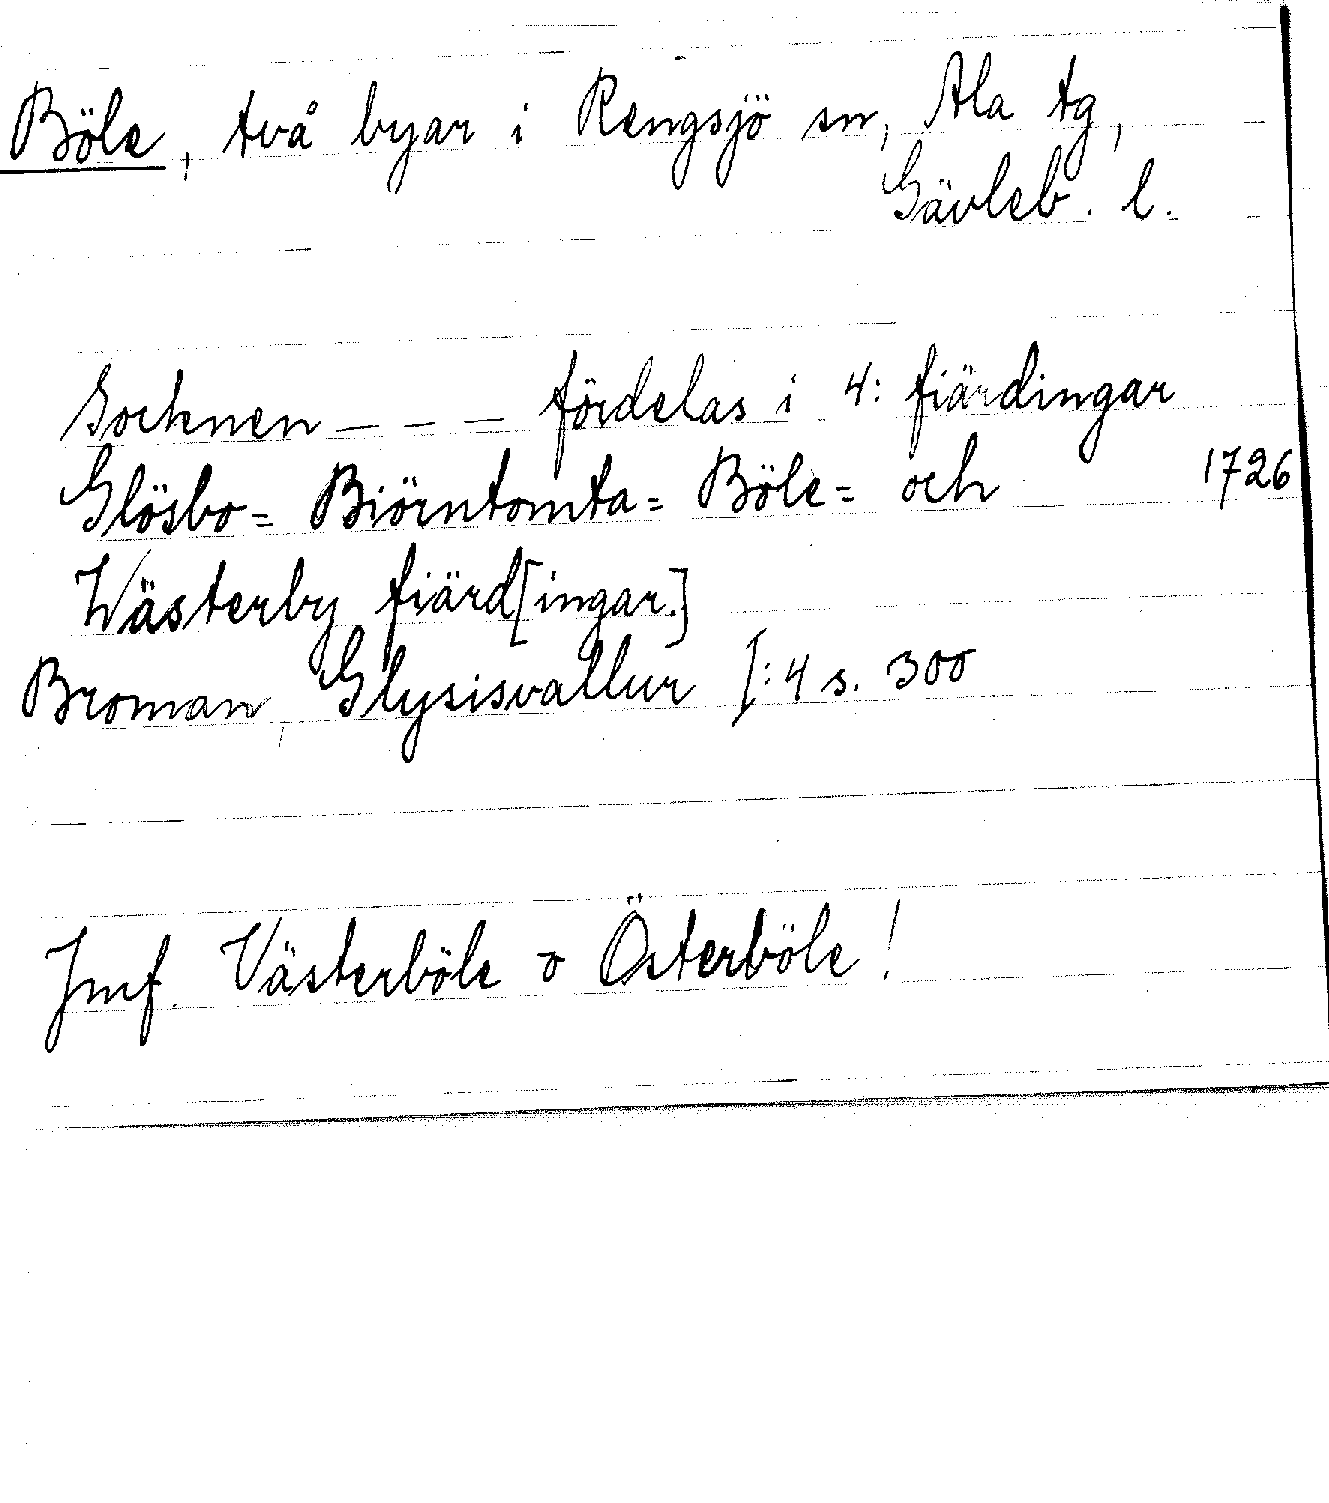 Böle, två byar i Rengsjö sn, Ala tg,
Gävleb. l.
Socknen - - - fördelas i 4: fiärdingar
Glösbo= Biörntomta= Böle= och 1726
Wästerby fiärd[ingar.]
Broman, Glysisvallur I:4 s. 300
Jmf. Västerböle o Österböle!